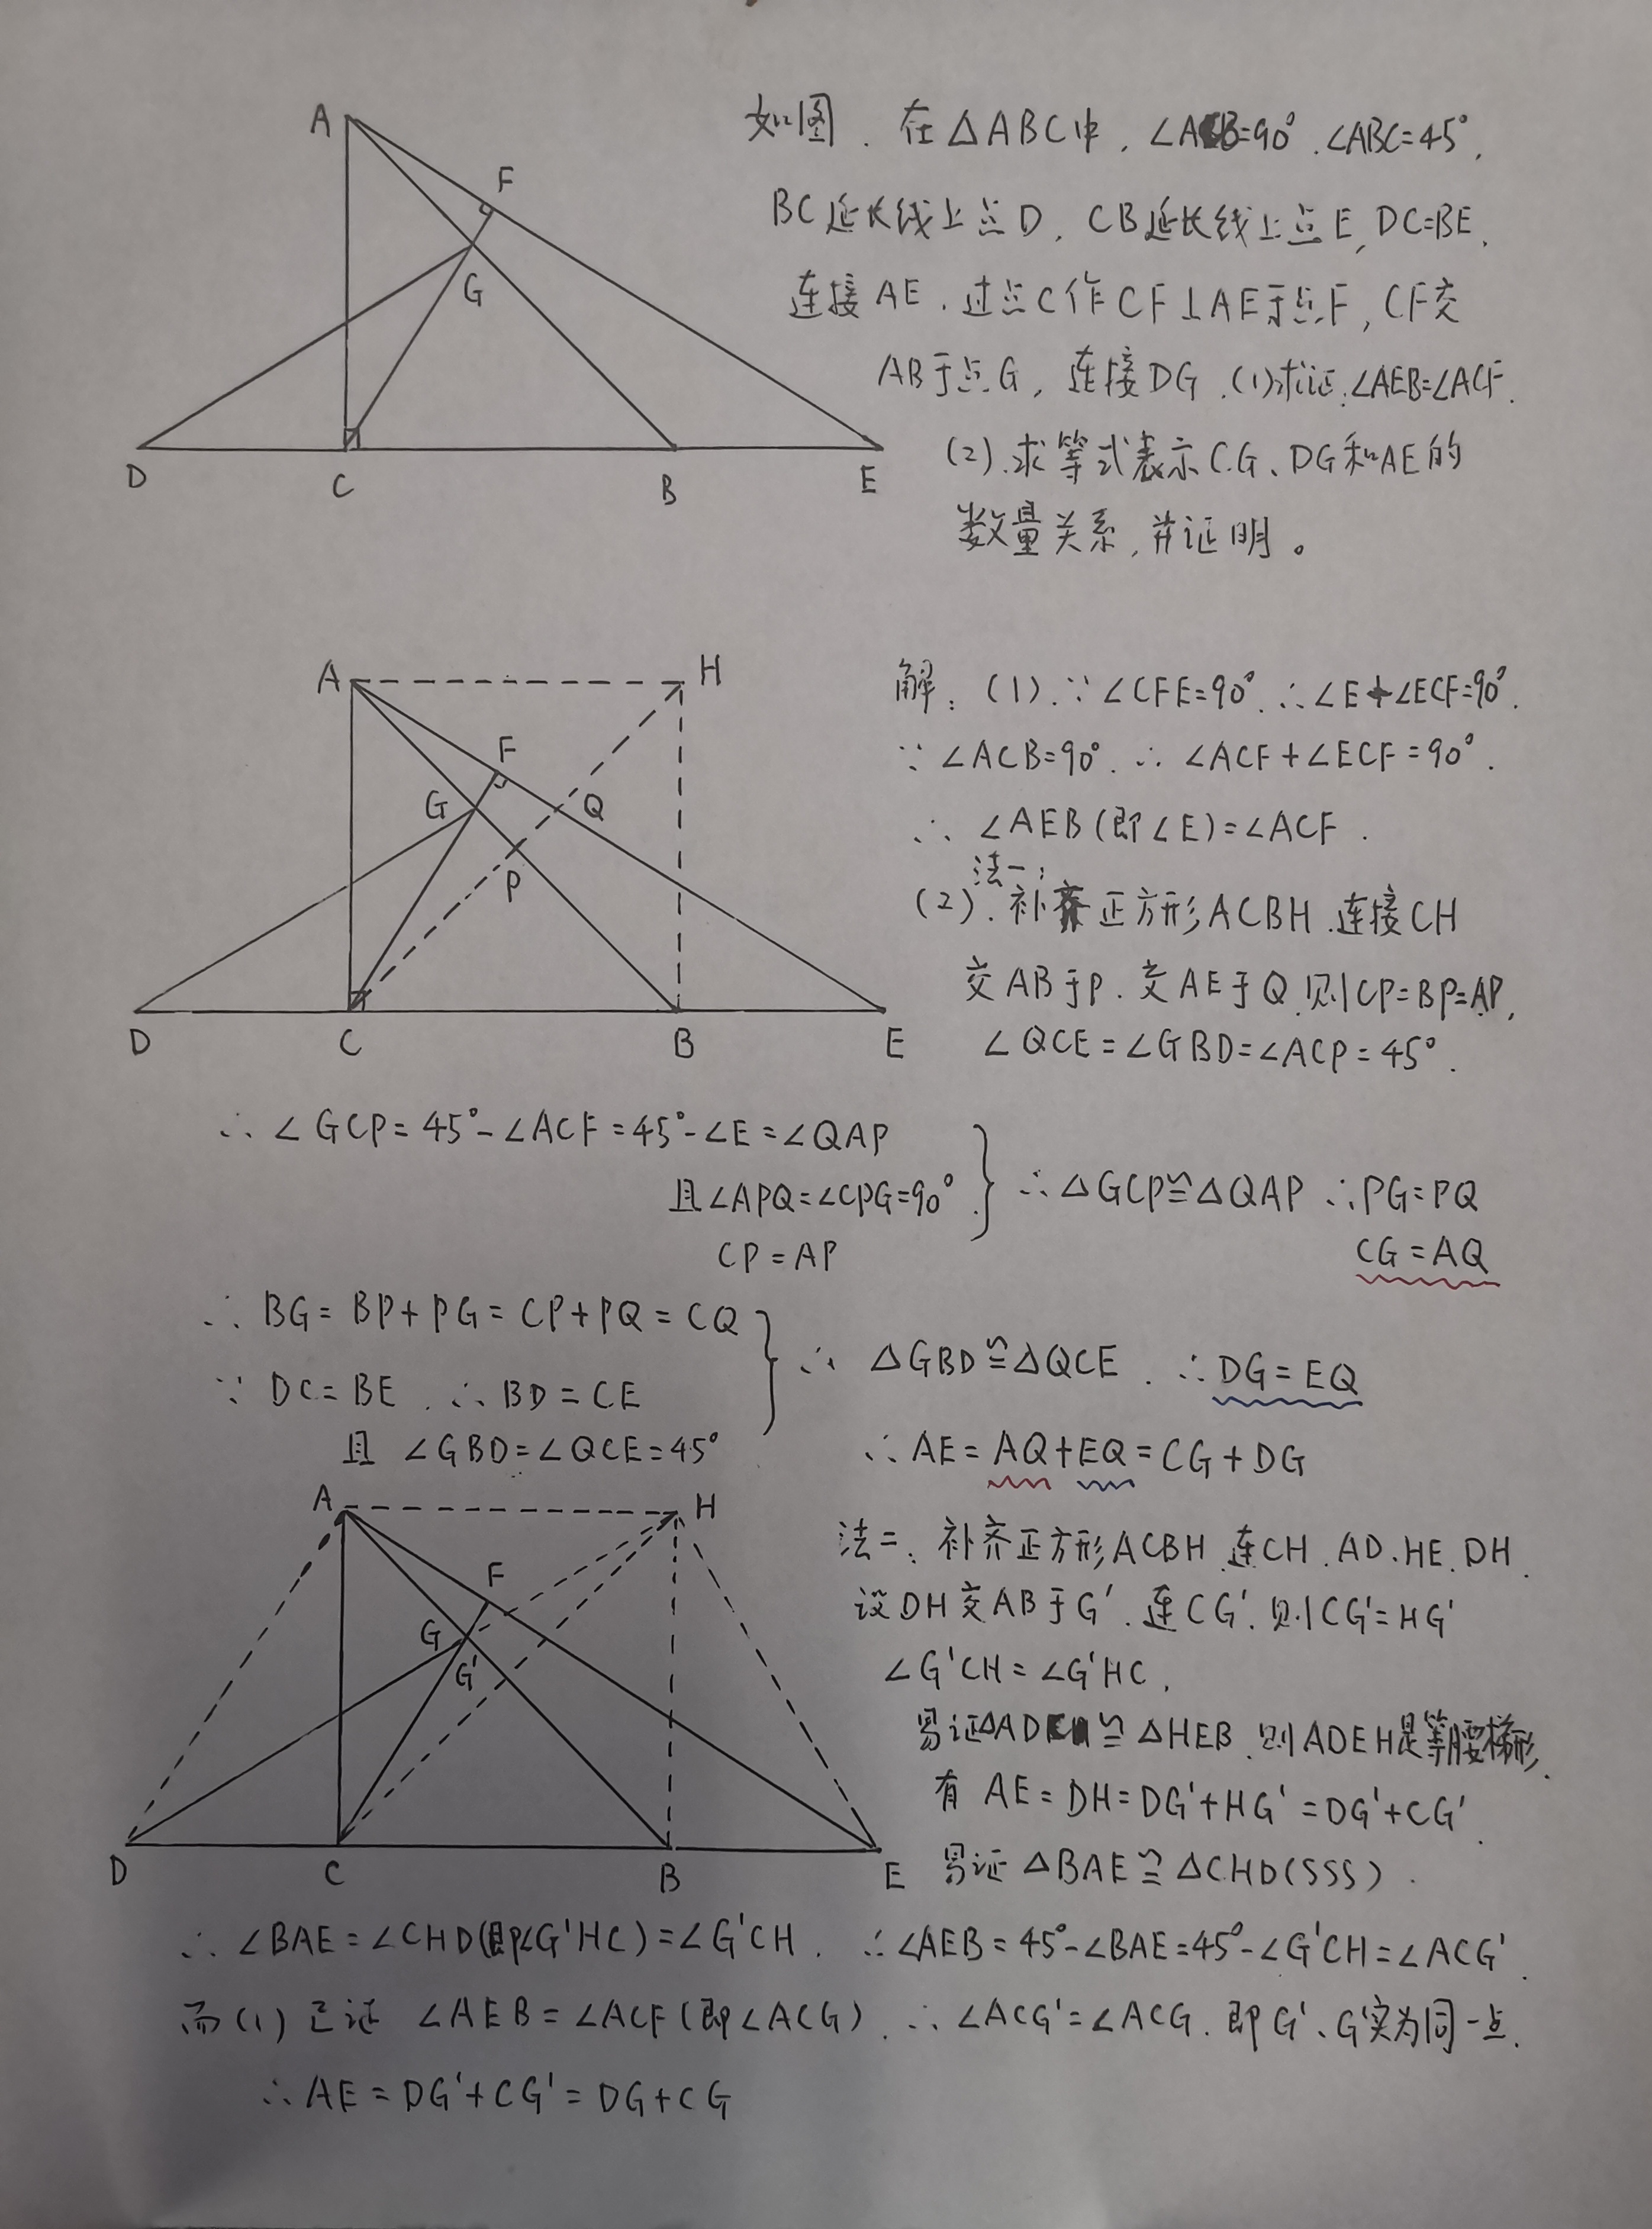 A
F
G
D
C
B
E
如图.在△ABC中,∠ACB=90°.∠ABC=45°,
BC延长线上点D,CB延长线上点E,DC=BE,
连接AE.过点C作CF⊥AE于点F,CF交
AB于点G,连接DG.(1)求证:∠AEB=∠ACF.
(2).求等式表示CG、DG和AE的
数量关系,并证明。
A
H
F
G
Q
P
D
C
B
E
解:(1).∵∠CFE=90°.∴∠E+∠ECF=90°.
∵∠ACB=90°.∴∠ACF+∠ECF=90°.
∴∠AEB(即∠E)=∠ACF.
法一:
(2).补齐正方形ACBH.连接CH
交AB于P.交AE于Q.则CP=BP=AP,
∠QCE=∠GBD=∠ACP=45°.
∴∠GCP=45°-∠ACF=45°-∠E=∠QAP
且∠APQ=∠CPG=90°
CP=AP
∴△GCP≌△QAP ∴PG=PQ
CG=AQ
∴BG=BP+PG=CP+PQ=CQ
∵DC=BE.∴BD=CE
且∠GBD=∠QCE=45°
∴△GBD≌△QCE.∴DG=EQ
∴AE=AQ+EQ=CG+DG
A
H
F
G
G'
D
C
B
E
法二:补齐正方形ACBH.连CH.AD.HE.DH.
设DH交AB于G'.连CG'.则CG'=HG'
∠G'CH=∠G'HC,
易证△ADC≌△HEB.则ADEH是等腰梯形.
有AE=DH=DG'+HG'=DG'+CG'.
易证△BAE≌△CHD(SSS).
∴∠BAE=∠CHD(即∠G'HC)=∠G'CH.∴∠AEB=45°-∠BAE=45°-∠G'CH=∠ACG'.
而(1)已证∠AEB=∠ACF(即∠ACG).∴∠ACG'=∠ACG.即G'、G实为同一点.
∴AE=DG'+CG'=DG+CG